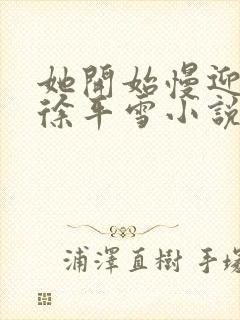 她開始慢迎
徐平雪小說
浦澤直樹 手塚